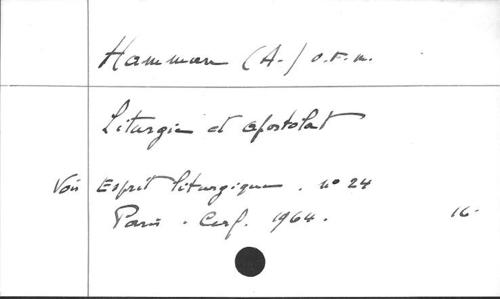 Hamman (A.-) o.f.m.
Liturgie et apostolat
Voir Esprit liturgique. n° 24
Paris. Cerf. 1964. 16-